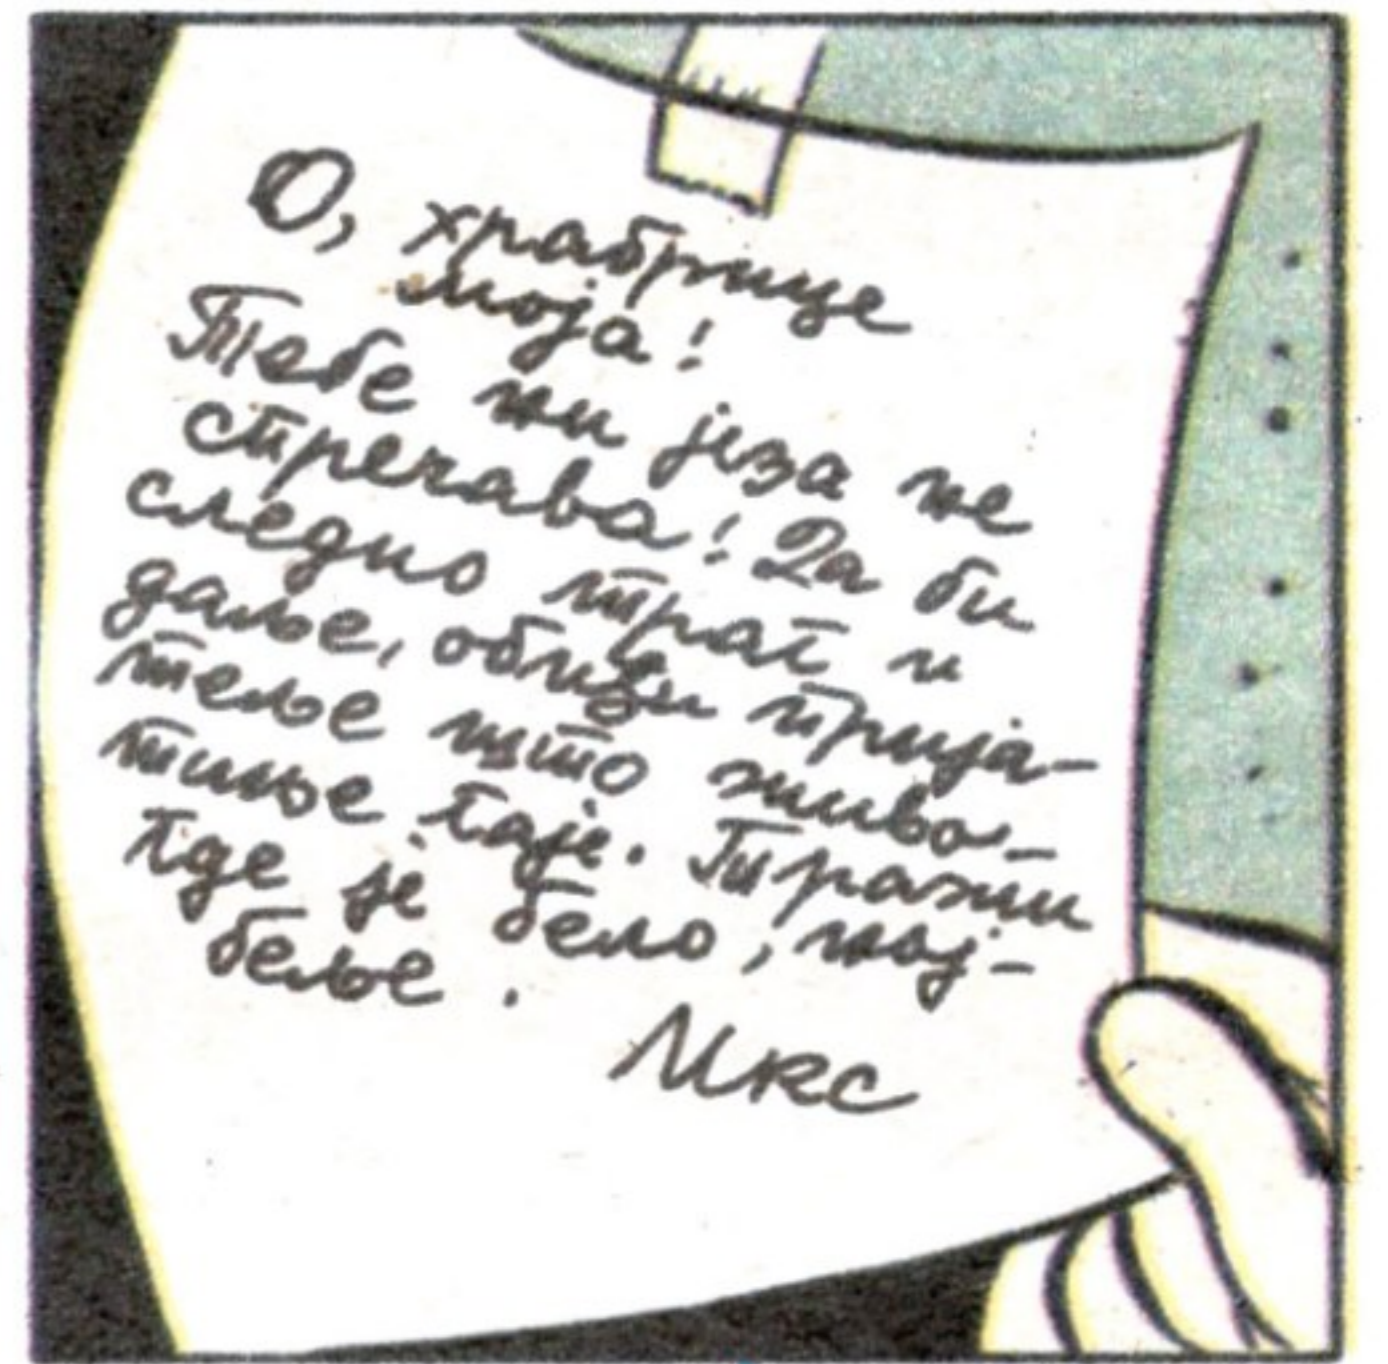 О, храбрице
моја!
Тебе ни језа не
стречава! Да би
следио траг и
даље, обиђи прија-
теље што живо-
тиње гаје. Тражи
где је бело, нај-
беље.
Мкс